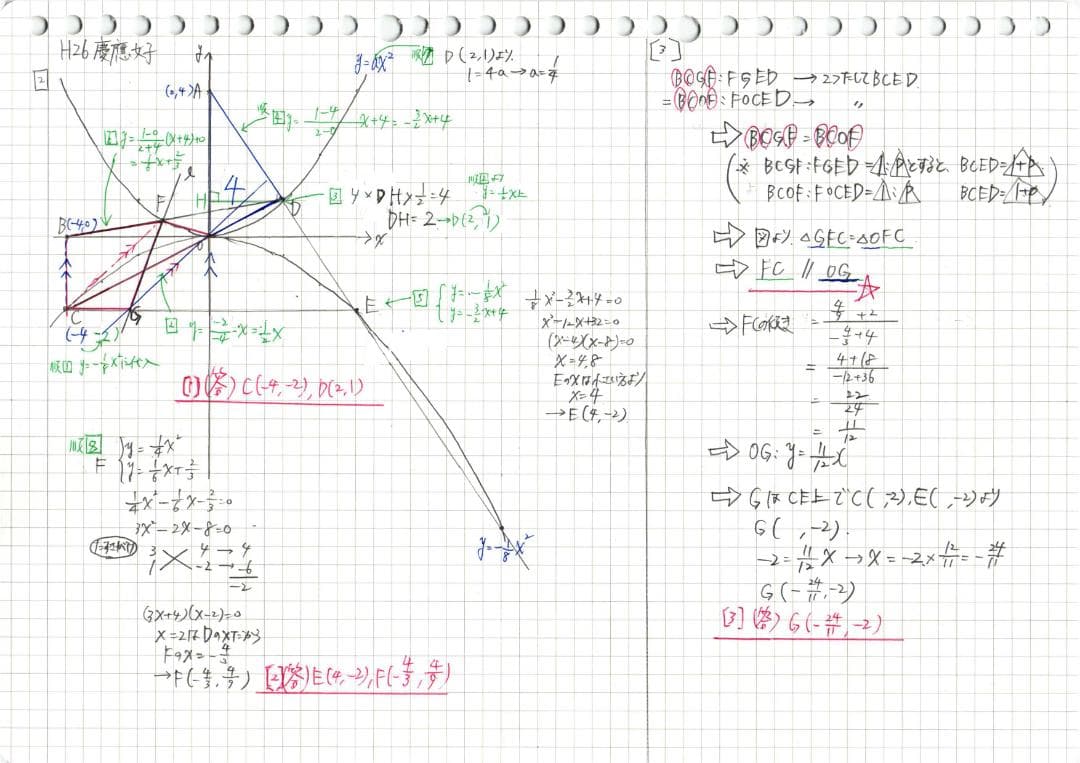 H26 慶應女子
[2]
y
y=ax²
順[7] D(2,1)より
1=4a→a=1/4
(0,4)A
順[4] y=(1-4)/(2-0) x+4=-3/2x+4
[6] y=(1-0)/(2+4)(x+4)+0
=1/6x+2/3
l
4
F
H
D
[3] 4×DH×1/2=4
DH=2→D(2,1)
順[2]より
y=1/2xに
B(-4,0)
O
x
C
(-4,-2)
G
順[1] y=-1/8x²に代入
[2] y=-2/-4 x=1/2x
E
[5] { y=-1/8x²
y=-3/2x+4
1/8x²-3/2x+4=0
x²-12x+32=0
(x-4)(x-8)=0
x=4,8
Eのxは小さい方より
x=4
→E(4,-2)
y=-1/8x²
[1](答) C(-4,-2), D(2,1)
順[8]
F { y=1/4x²
y=1/6x+2/3
1/4x²-1/6x-2/3=0
3x²-2x-8=0
たすきがけ
3 4→4
1 -2→-6
-2
(3x+4)(x-2)=0
x=2はDのxだから
Fのx=-4/3
→F(-4/3, 4/9)
[2](答) E(4,-2), F(-4/3, 4/9)
[3]
BCGF:FGED →2つたしてBCED
=BCOF:FOCED→ 〃
⇨ BCGF=BCOF
(※ BCGF:FGED=1:Pとすると、BCED=1+P
BCOF:FOCED=1:P BCED=1+P)
⇨ 図より △GFC=△OFC
⇨ FC // OG
☆
⇨ FCの傾き=(4/9+2)/(-4/3+4)
=(4+18)/(-12+36)
=22/24
=11/12
⇨ OG:y=11/12x
⇨ GはCE上でC( ,-2),E( ,-2)より
G( ,-2)
-2=11/12x→x=-2×12/11=-24/11
G(-24/11,-2)
[3](答) G(-24/11,-2)